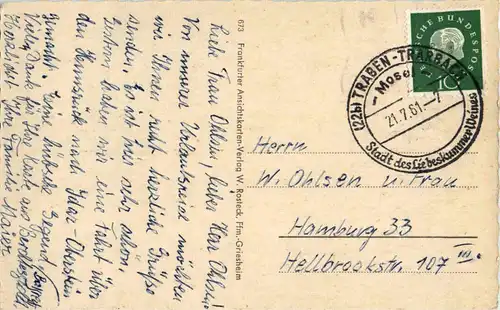 Liebe Frau Ohlsen, lieber Herr Ohlsen!
Von unserer Urlaubsreise möchten
wir Ihnen recht herzliche Grüße
senden. Es ist hier sehr schön.
Gestern haben wir eine Fahrt über
den Hunsrück nach Idar-Oberstein
gemacht. Eine hübsche Gegend.
Vielen Dank für Ihre Karte aus
Herzlichst Ihre Familie Maier
673 Frankfurter Ansichtskarten-Verlag W. Rosteck, Ffm.-Griesheim
CHE BUNDESPOS
10
(22b) TRABEN-TRARBACH
Mosel
21.7.61.-7
Stadt des Liebeskummer Weines
Herrn
W. Ohlsen u. Frau
Hamburg 33
Hellbrookstr. 107 III.